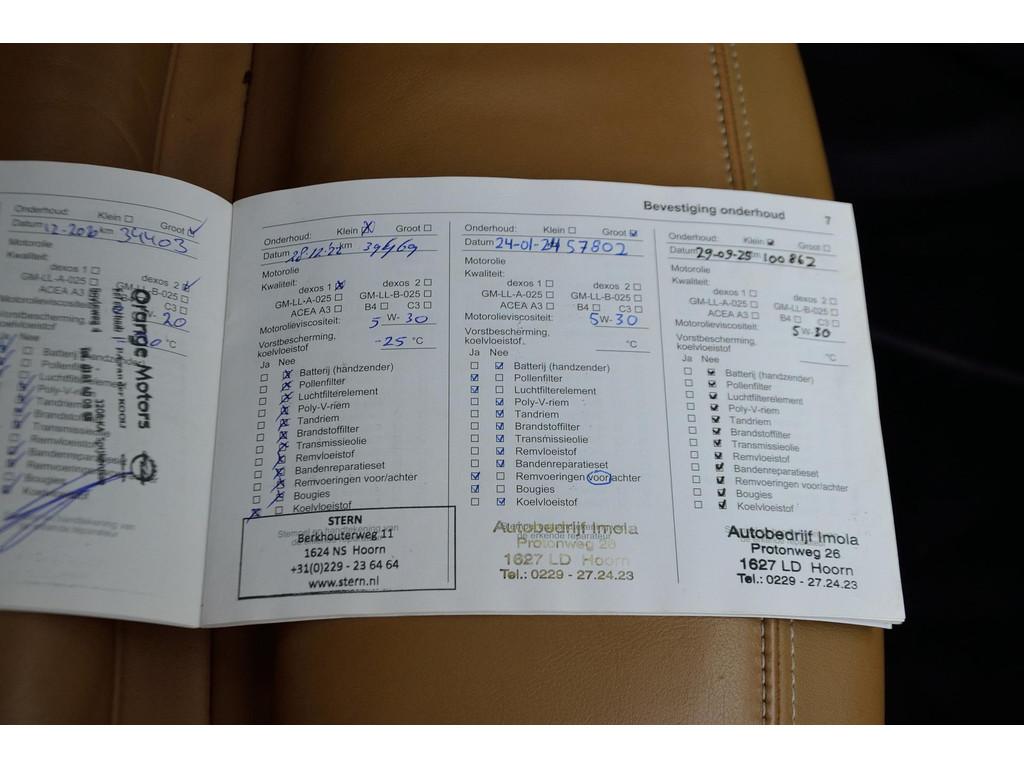 Onderhoud: Klein Groot
Datum 12-2020 km 34403
Motorolie
Kwaliteit:
dexos 1 dexos 2
GM-LL-A-025 GM-LL-B-025
ACEA A3 B4 C3
W-20
°C
Nee
Batterij (handzender)
Pollenfilter
Luchtfilterelement
Poly-V-riem
Tandriem
Brandstoffilter
Transmissieolie
Remvloeistof
Bandenreparatieset
Remvoeringen
Bougies
Motors
Bevestiging onderhoud 7
Onderhoud: Klein Groot
Datum 28-12-22 km 39469
Motorolie
Kwaliteit:
dexos 1 dexos 2
GM-LL-A-025 GM-LL-B-025
ACEA A3 B4 C3
Motorolieviscositeit: 5 W- 30
Vorstbescherming,
koelvloeistof -25 °C
Ja Nee
Batterij (handzender)
Pollenfilter
Luchtfilterelement
Poly-V-riem
Tandriem
Brandstoffilter
Transmissieolie
Remvloeistof
Bandenreparatieset
Remvoeringen voor/achter
Bougies
Koelvloeistof
Stempel en handtekening van
STERN
Berkhouterweg 11
1624 NS Hoorn
+31(0)229 - 23 64 64
www.stern.nl
Onderhoud: Klein Groot
Datum 24-01-24 57802
Motorolie
Kwaliteit:
dexos 1 dexos 2
GM-LL-A-025 GM-LL-B-025
ACEA A3 B4 C3
Motorolieviscositeit: 5W-30
Vorstbescherming,
koelvloeistof °C
Ja Nee
Batterij (handzender)
Pollenfilter
Luchtfilterelement
Poly-V-riem
Tandriem
Brandstoffilter
Transmissieolie
Remvloeistof
Bandenreparatieset
Remvoeringen voor/achter
Bougies
Koelvloeistof
de erkende reparateur
Autobedrijf Imola
Protonweg 26
1627 LD Hoorn
Tel.: 0229 - 27.24.23
Onderhoud: Klein Groot
Datum 29-09-25 km 100862
Motorolie
Kwaliteit:
dexos 1 dexos 2
GM-LL-A-025 GM-LL-B-025
ACEA A3 B4 C3
Motorolieviscositeit: 5W-30
Vorstbescherming,
koelvloeistof °C
Ja Nee
Batterij (handzender)
Pollenfilter
Luchtfilterelement
Poly-V-riem
Tandriem
Brandstoffilter
Transmissieolie
Remvloeistof
Bandenreparatieset
Remvoeringen voor/achter
Bougies
Koelvloeistof
Autobedrijf Imola
Protonweg 26
1627 LD Hoorn
Tel.: 0229 - 27.24.23